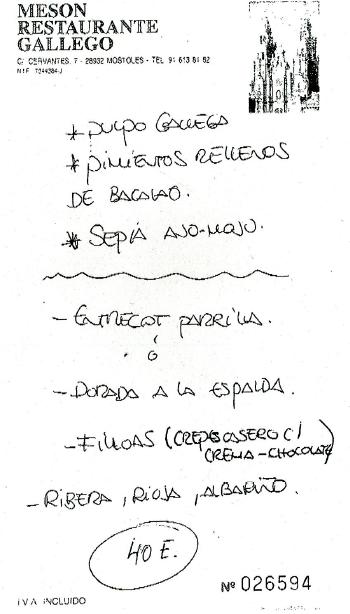 MESON
RESTAURANTE
GALLEGO
C/ CERVANTES, 7 - 28932 MOSTOLES - TEL. 91 613 81 62
N.I.F.
* PULPO GALLEGA
* PIMIENTOS RELLENOS
DE BACALAO.
* SEPIA AJO-MOJO.
- ENTRECOT PARRILLA.
ó
- DORADA A LA ESPALDA.
- FILLOAS (CREPES CASERO C/
CREMA-CHOCOLATE)
- RIBERA, RIOJA, ALBARIÑO.
40 E.
Nº 026594
I.V.A. INCLUIDO